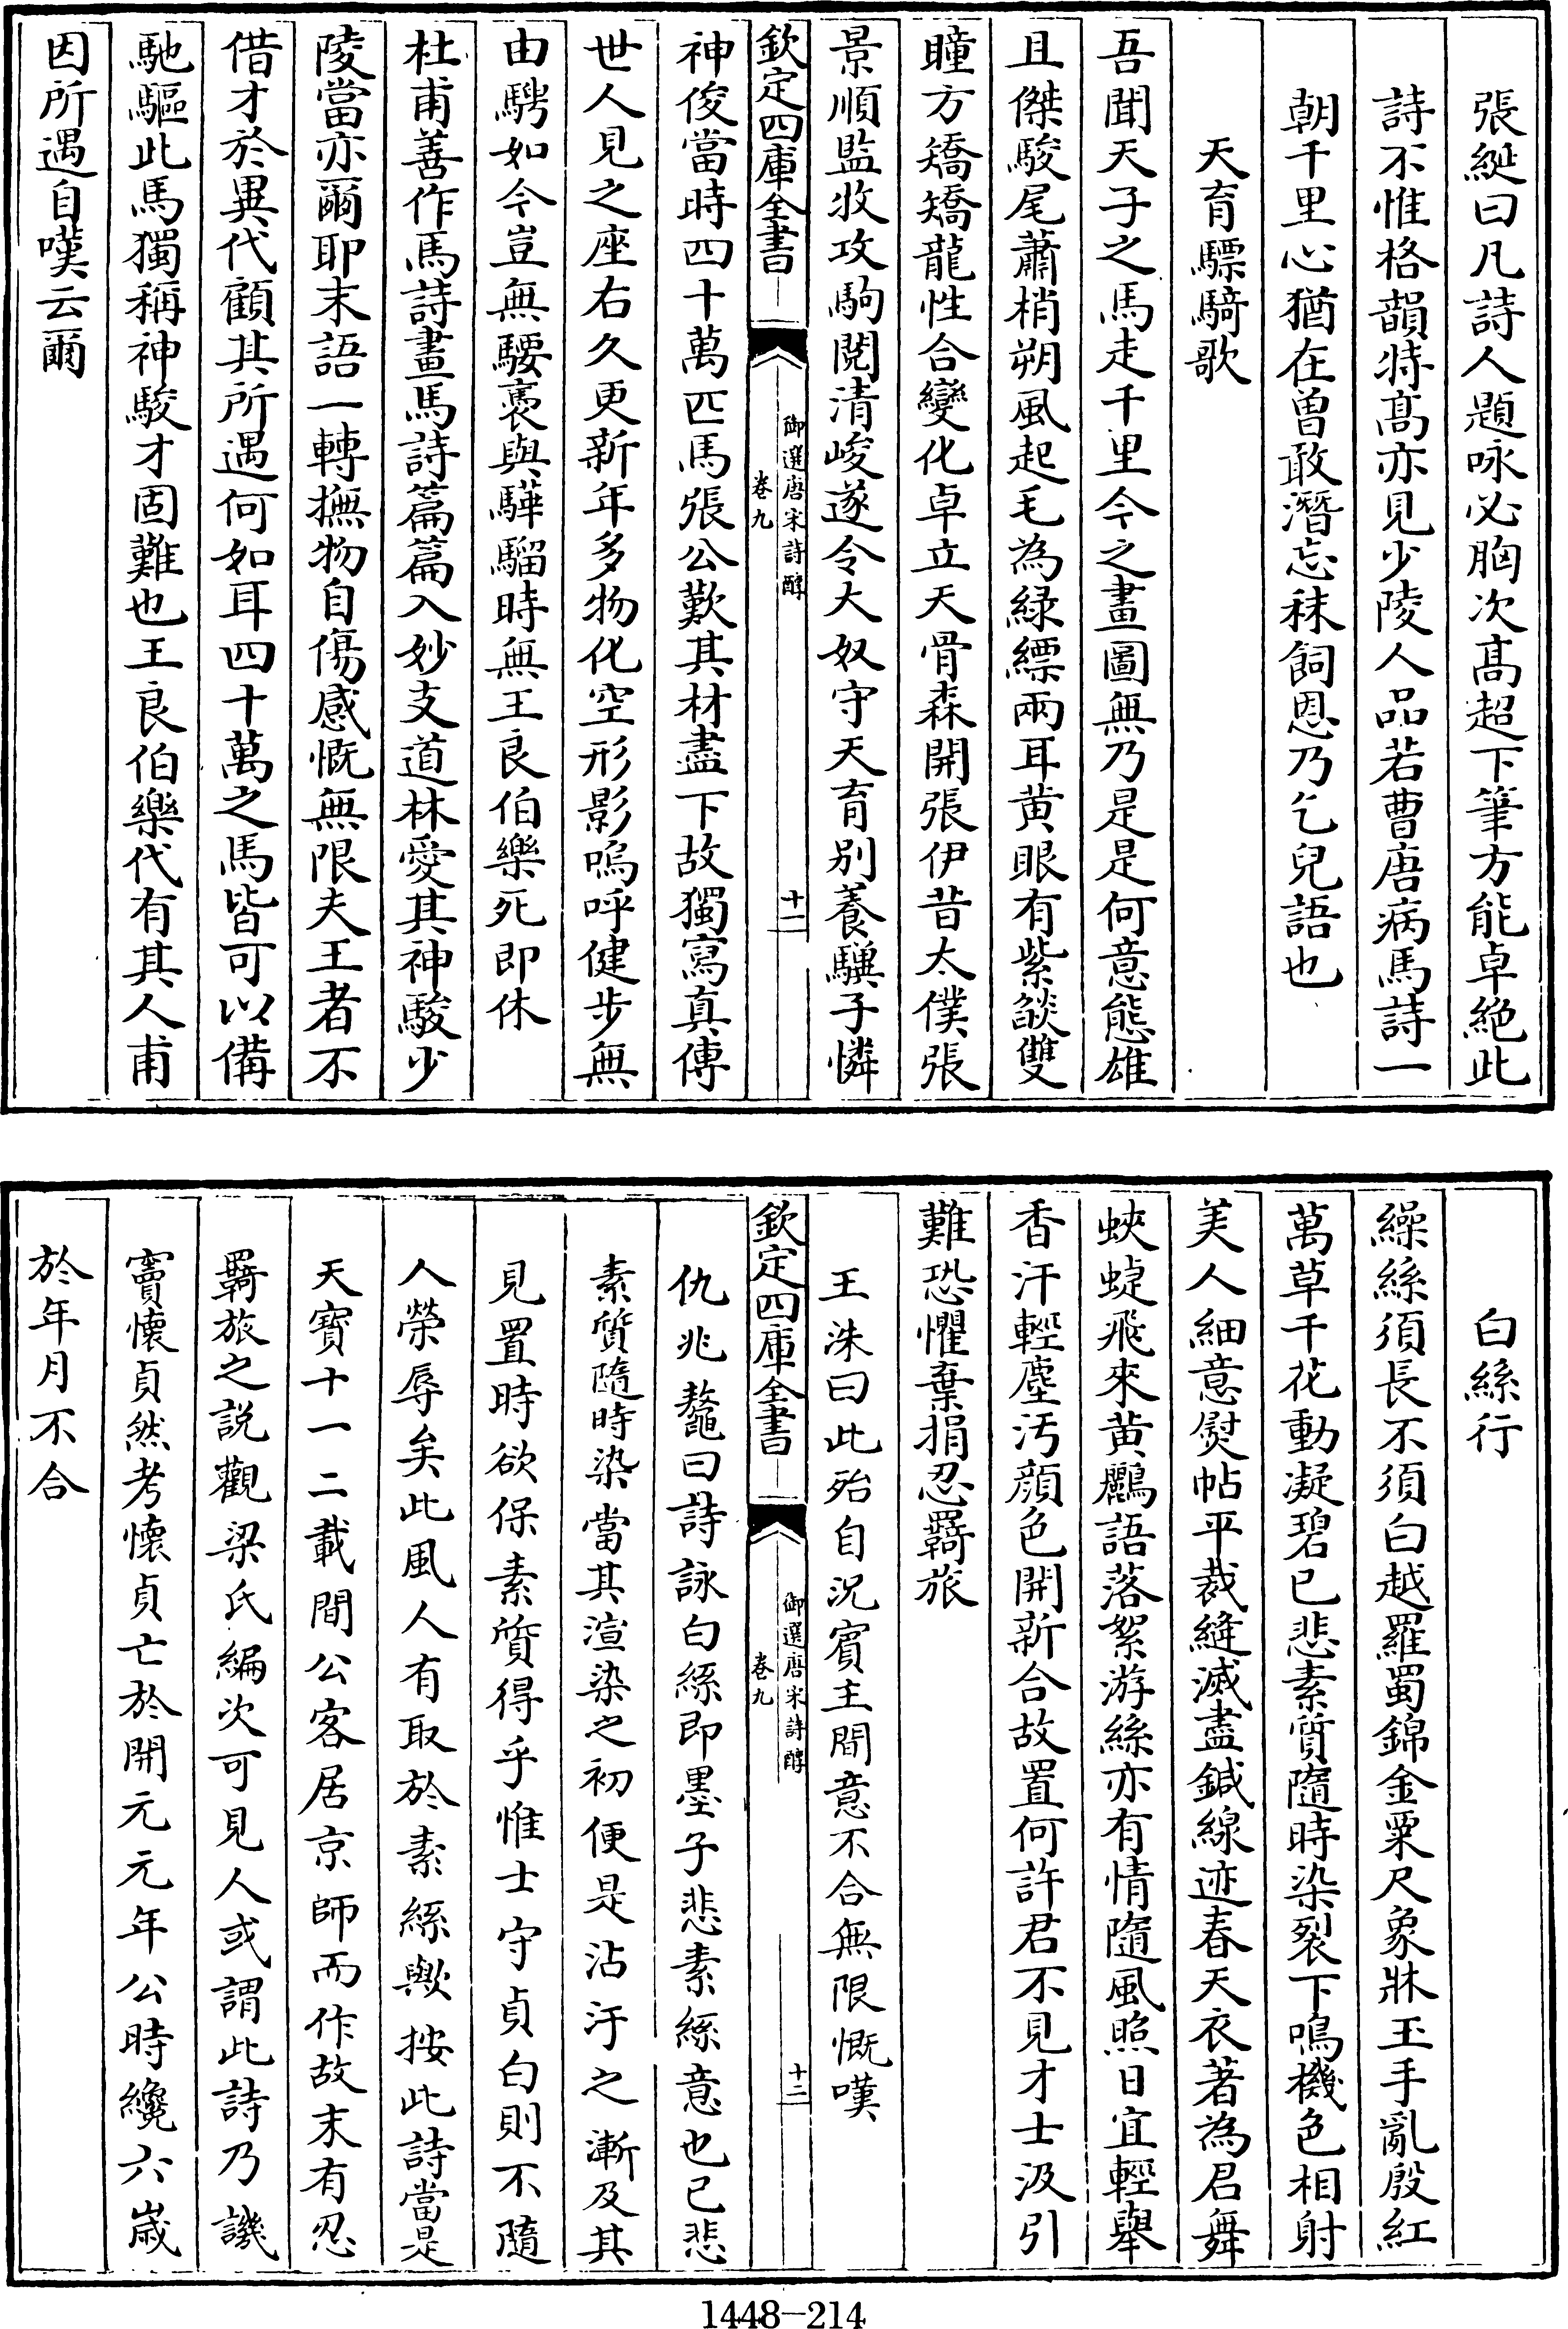 張綖曰凡詩人題咏必胸次髙超下筆方能卓絶此
詩不惟格韻特髙亦見少陵人品若曹唐病馬詩一
朝千里心猶在曽敢潛忘秣飼恩乃乞兒語也
天育驃騎歌
吾聞天子之馬走千里今之畫圖無乃是是何意態雄
且傑駿尾蕭梢朔風起毛為緑縹兩耳黄眼有紫燄雙
瞳方矯矯龍性合變化卓立天骨森開張伊昔太僕張
景順監牧攻駒閲清峻遂令大奴守天育别養驥子憐
欽定四庫全書
御選唐宋詩醇
卷九
十一
神俊當時四十萬匹馬張公歎其材盡下故獨寫真傳
世人見之座右久更新年多物化空形影嗚呼健步無
由騁如今豈無騕褭與驊騮時無王良伯樂死即休
杜甫善作馬詩畫馬詩篇篇入妙支道林愛其神駿少
陵當亦爾耶末語一轉撫物自傷感慨無限夫王者不
借才於異代顧其所遇何如耳四十萬之馬皆可以備
馳驅此馬獨稱神駿才固難也王良伯樂代有其人甫
因所遇自嘆云爾
白絲行
繰絲須長不須白越羅蜀錦金粟尺象牀玉手亂殷紅
萬草千花動凝碧已悲素質隨時染裂下鳴機色相射
美人細意熨帖平裁縫滅盡鍼線迹春天衣著為君舞
蛺蝶飛來黄鸝語落絮游絲亦有情隨風照日宜輕舉
香汗輕塵汚顔色開新合故置何許君不見才士汲引
難恐懼棄捐忍羇旅
王洙曰此殆自況賓主間意不合無限慨嘆
欽定四庫全書
御選唐宋詩醇
卷九
十二
仇兆鰲曰詩詠白絲即墨子悲素絲意也已悲
素質隨時染當其渲染之初便是沾汙之漸及其
見置時欲保素質得乎惟士守貞白則不隨
人榮辱矣此風人有取於素絲歟按此詩當是
天寳十一二載間公客居京師而作故末有忍
羇旅之説觀梁氏編次可見人或謂此詩乃譏
竇懷貞然考懷貞亡於開元元年公時纔六歳
於年月不合
1448-214